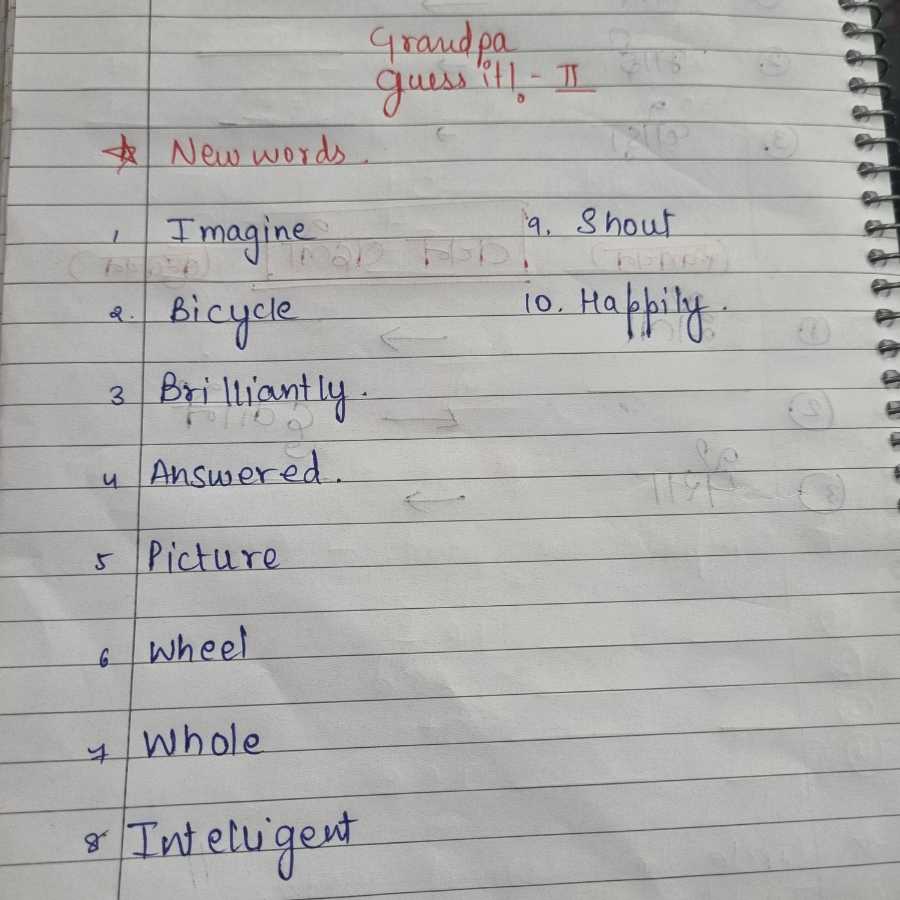 Grandpa
guess it!. - II
☆ New words.
1 Imagine
2. Bicycle
3 Brilliantly.
4 Answered.
5 Picture
6 Wheel
7 Whole
8 Intelligent
9. Shout
10. Happily.